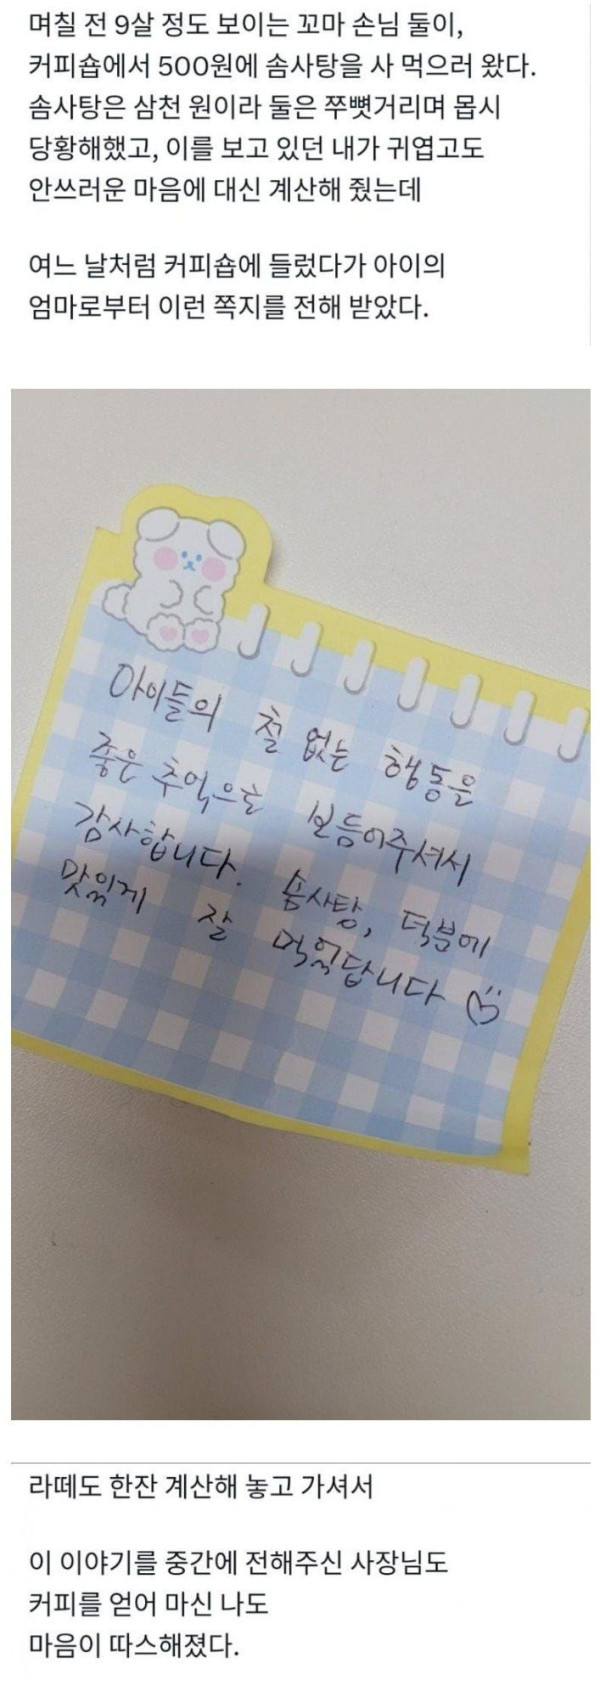 며칠 전 9살 정도 보이는 꼬마 손님 둘이,
커피숍에서 500원에 솜사탕을 사 먹으러 왔다.
솜사탕은 삼천 원이라 둘은 쭈뼛거리며 몹시
당황해했고, 이를 보고 있던 내가 귀엽고도
안쓰러운 마음에 대신 계산해 줬는데
여느 날처럼 커피숍에 들렀다가 아이의
엄마로부터 이런 쪽지를 전해 받았다.
아이들의 철 없는 행동을
좋은 추억으로 보듬어주셔서
감사합니다. 솜사탕, 덕분에
맛있게 잘 먹었답니다
라떼도 한잔 계산해 놓고 가셔서
이 이야기를 중간에 전해주신 사장님도
커피를 얻어 마신 나도
마음이 따스해졌다.